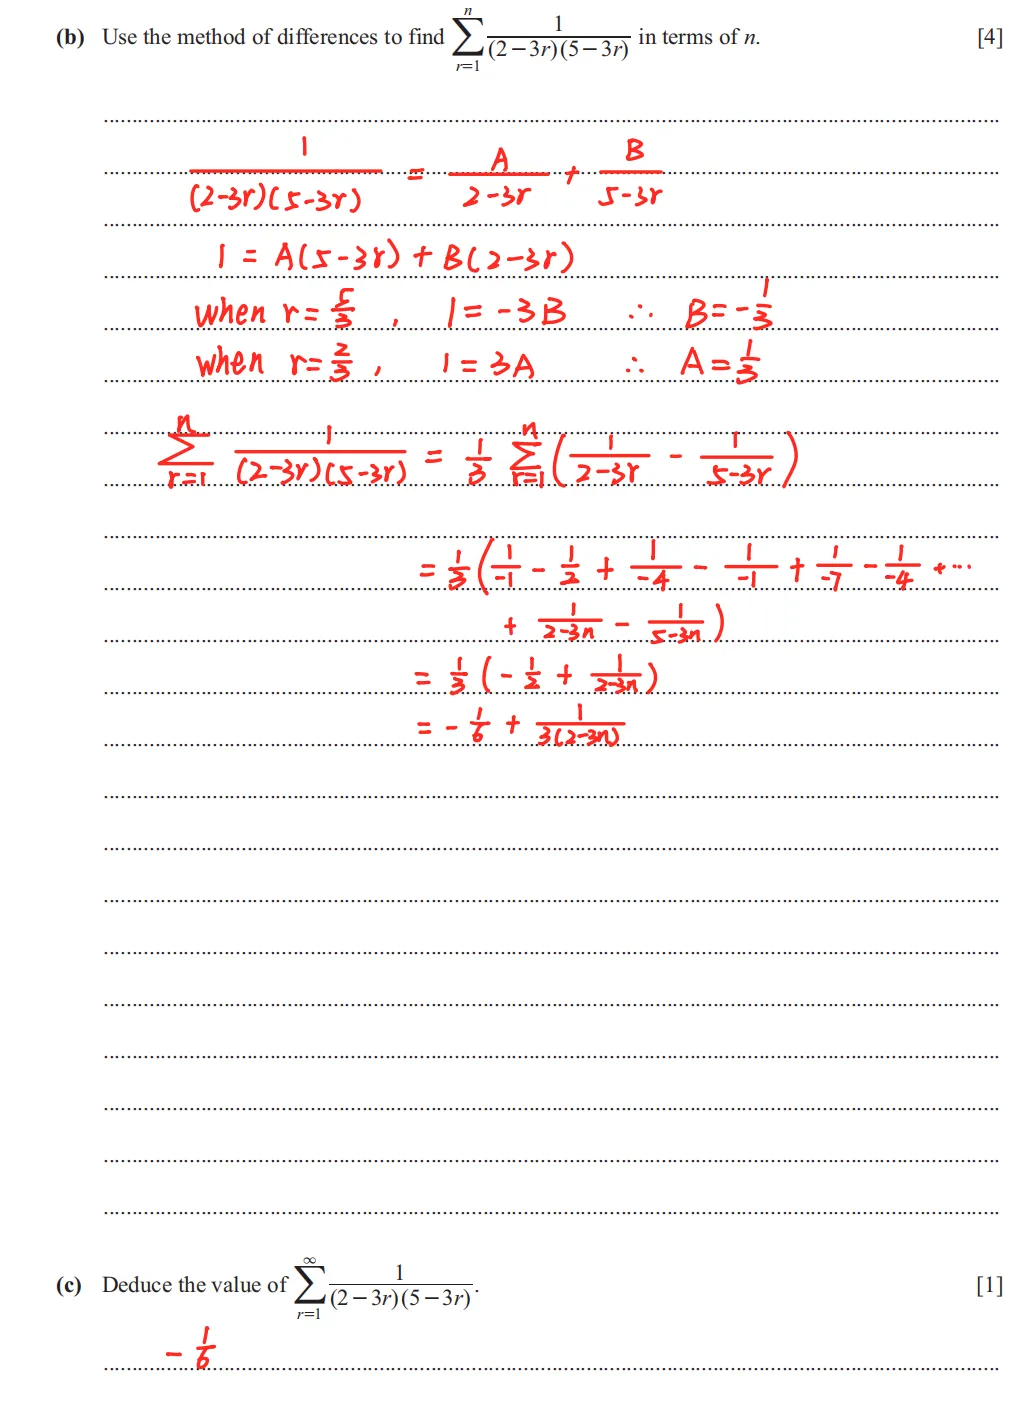 (b) Use the method of differences to find $\sum_{r=1}^{n} \frac{1}{(2-3r)(5-3r)}$ in terms of n. [4]
$\frac{1}{(2-3r)(5-3r)} = \frac{A}{2-3r} + \frac{B}{5-3r}$
$1 = A(5-3r) + B(2-3r)$
when $r = \frac{5}{3}$, $1 = -3B$ $\therefore B = -\frac{1}{3}$
when $r = \frac{2}{3}$, $1 = 3A$ $\therefore A = \frac{1}{3}$
$\sum_{r=1}^{n} \frac{1}{(2-3r)(5-3r)} = \frac{1}{3} \sum_{r=1}^{n} \left( \frac{1}{2-3r} - \frac{1}{5-3r} \right)$
$= \frac{1}{3} ( \frac{1}{-1} - \frac{1}{2} + \frac{1}{-4} - \frac{1}{-1} + \frac{1}{-7} - \frac{1}{-4} + \cdots$
$+ \frac{1}{2-3n} - \frac{1}{5-3n} )$
$= \frac{1}{3} ( -\frac{1}{2} + \frac{1}{2-3n} )$
$= -\frac{1}{6} + \frac{1}{3(2-3n)}$
(c) Deduce the value of $\sum_{r=1}^{\infty} \frac{1}{(2-3r)(5-3r)}$. [1]
$-\frac{1}{6}$